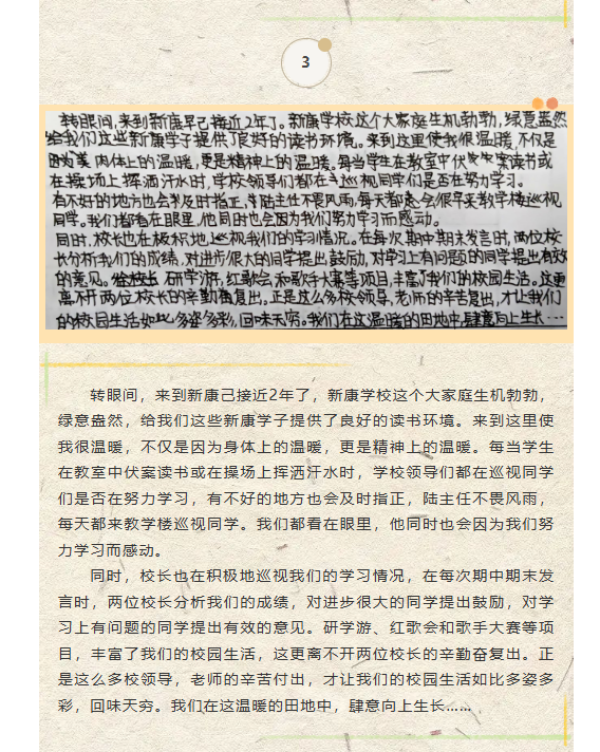 3
转眼间,来到新康早已接近2年了。新康学校这个大家庭生机勃勃,绿意盎然
给我们这些新康学子提供了良好的读书环境。来到这里使我很温暖,不仅是
因为 肉体上的温暖,更是精神上的温暖。每当学生在教室中伏案读书或
在操场上挥洒汗水时,学校领导们都在巡视同学们是否在努力学习。
有不好的地方也会及时指正,陆主任不畏风雨,每天都会很早来教学楼巡视
同学。我们都看在眼里,他同时也会因为我们努力学习而感动。
同时,校长也在极积地巡视我们的学习情况。在每次期中期末发言时,两位校
长分析我们的成绩,对进步很大的同学提出鼓励,对学习上有问题的同学提出有效
的意见。研学游,红歌会和歌手大赛等项目,丰富了我们的校园生活。这更
离不开两位校长的辛勤复出,正是这么多校领导,老师的辛苦复出,才让我们
的校园生活如此多姿多彩,回味无穷。我们在这温暖的田地中,肆意向上生长…
转眼间，来到新康己接近2年了，新康学校这个大家庭生机勃勃，
绿意盎然，给我们这些新康学子提供了良好的读书环境。来到这里使
我很温暖，不仅是因为身体上的温暖，更是精神上的温暖。每当学生
在教室中伏案读书或在操场上挥洒汗水时，学校领导们都在巡视同学
们是否在努力学习，有不好的地方也会及时指正，陆主任不畏风雨，
每天都来教学楼巡视同学。我们都看在眼里，他同时也会因为我们努
力学习而感动。
同时，校长也在积极地巡视我们的学习情况，在每次期中期末发
言时，两位校长分析我们的成绩，对进步很大的同学提出鼓励，对学
习上有问题的同学提出有效的意见。研学游、红歌会和歌手大赛等项
目，丰富了我们的校园生活，这更离不开两位校长的辛勤奋复出。正
是这么多校领导，老师的辛苦付出，才让我们的校园生活如比多姿多
彩，回味天穷。我们在这温暖的田地中，肆意向上生长……